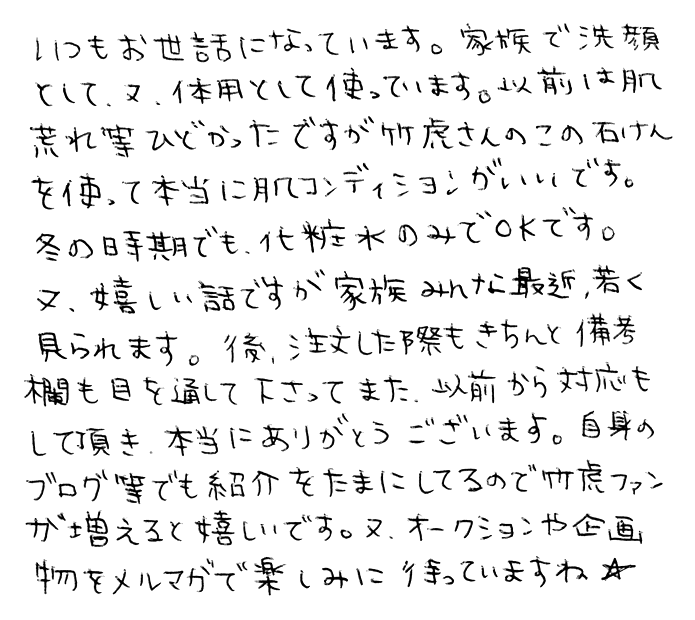 いつもお世話になっています。家族で洗顔
として、又、体用として使っています。以前は肌
荒れ等ひどかったですが竹虎さんのこの石けん
を使って本当に肌コンディションがいいです。
冬の時期でも、化粧水のみでOKです。
又、嬉しい話ですが家族みんな最近、若く
見られます。後、注文した際もきちんと備考
欄も目を通して下さってまた、以前から対応も
して頂き、本当にありがとうございます。自身の
ブログ等でも紹介をたまにしてるので竹虎ファン
が増えると嬉しいです。又、オークションや企画
物をメルマガで楽しみに待っていますね☆